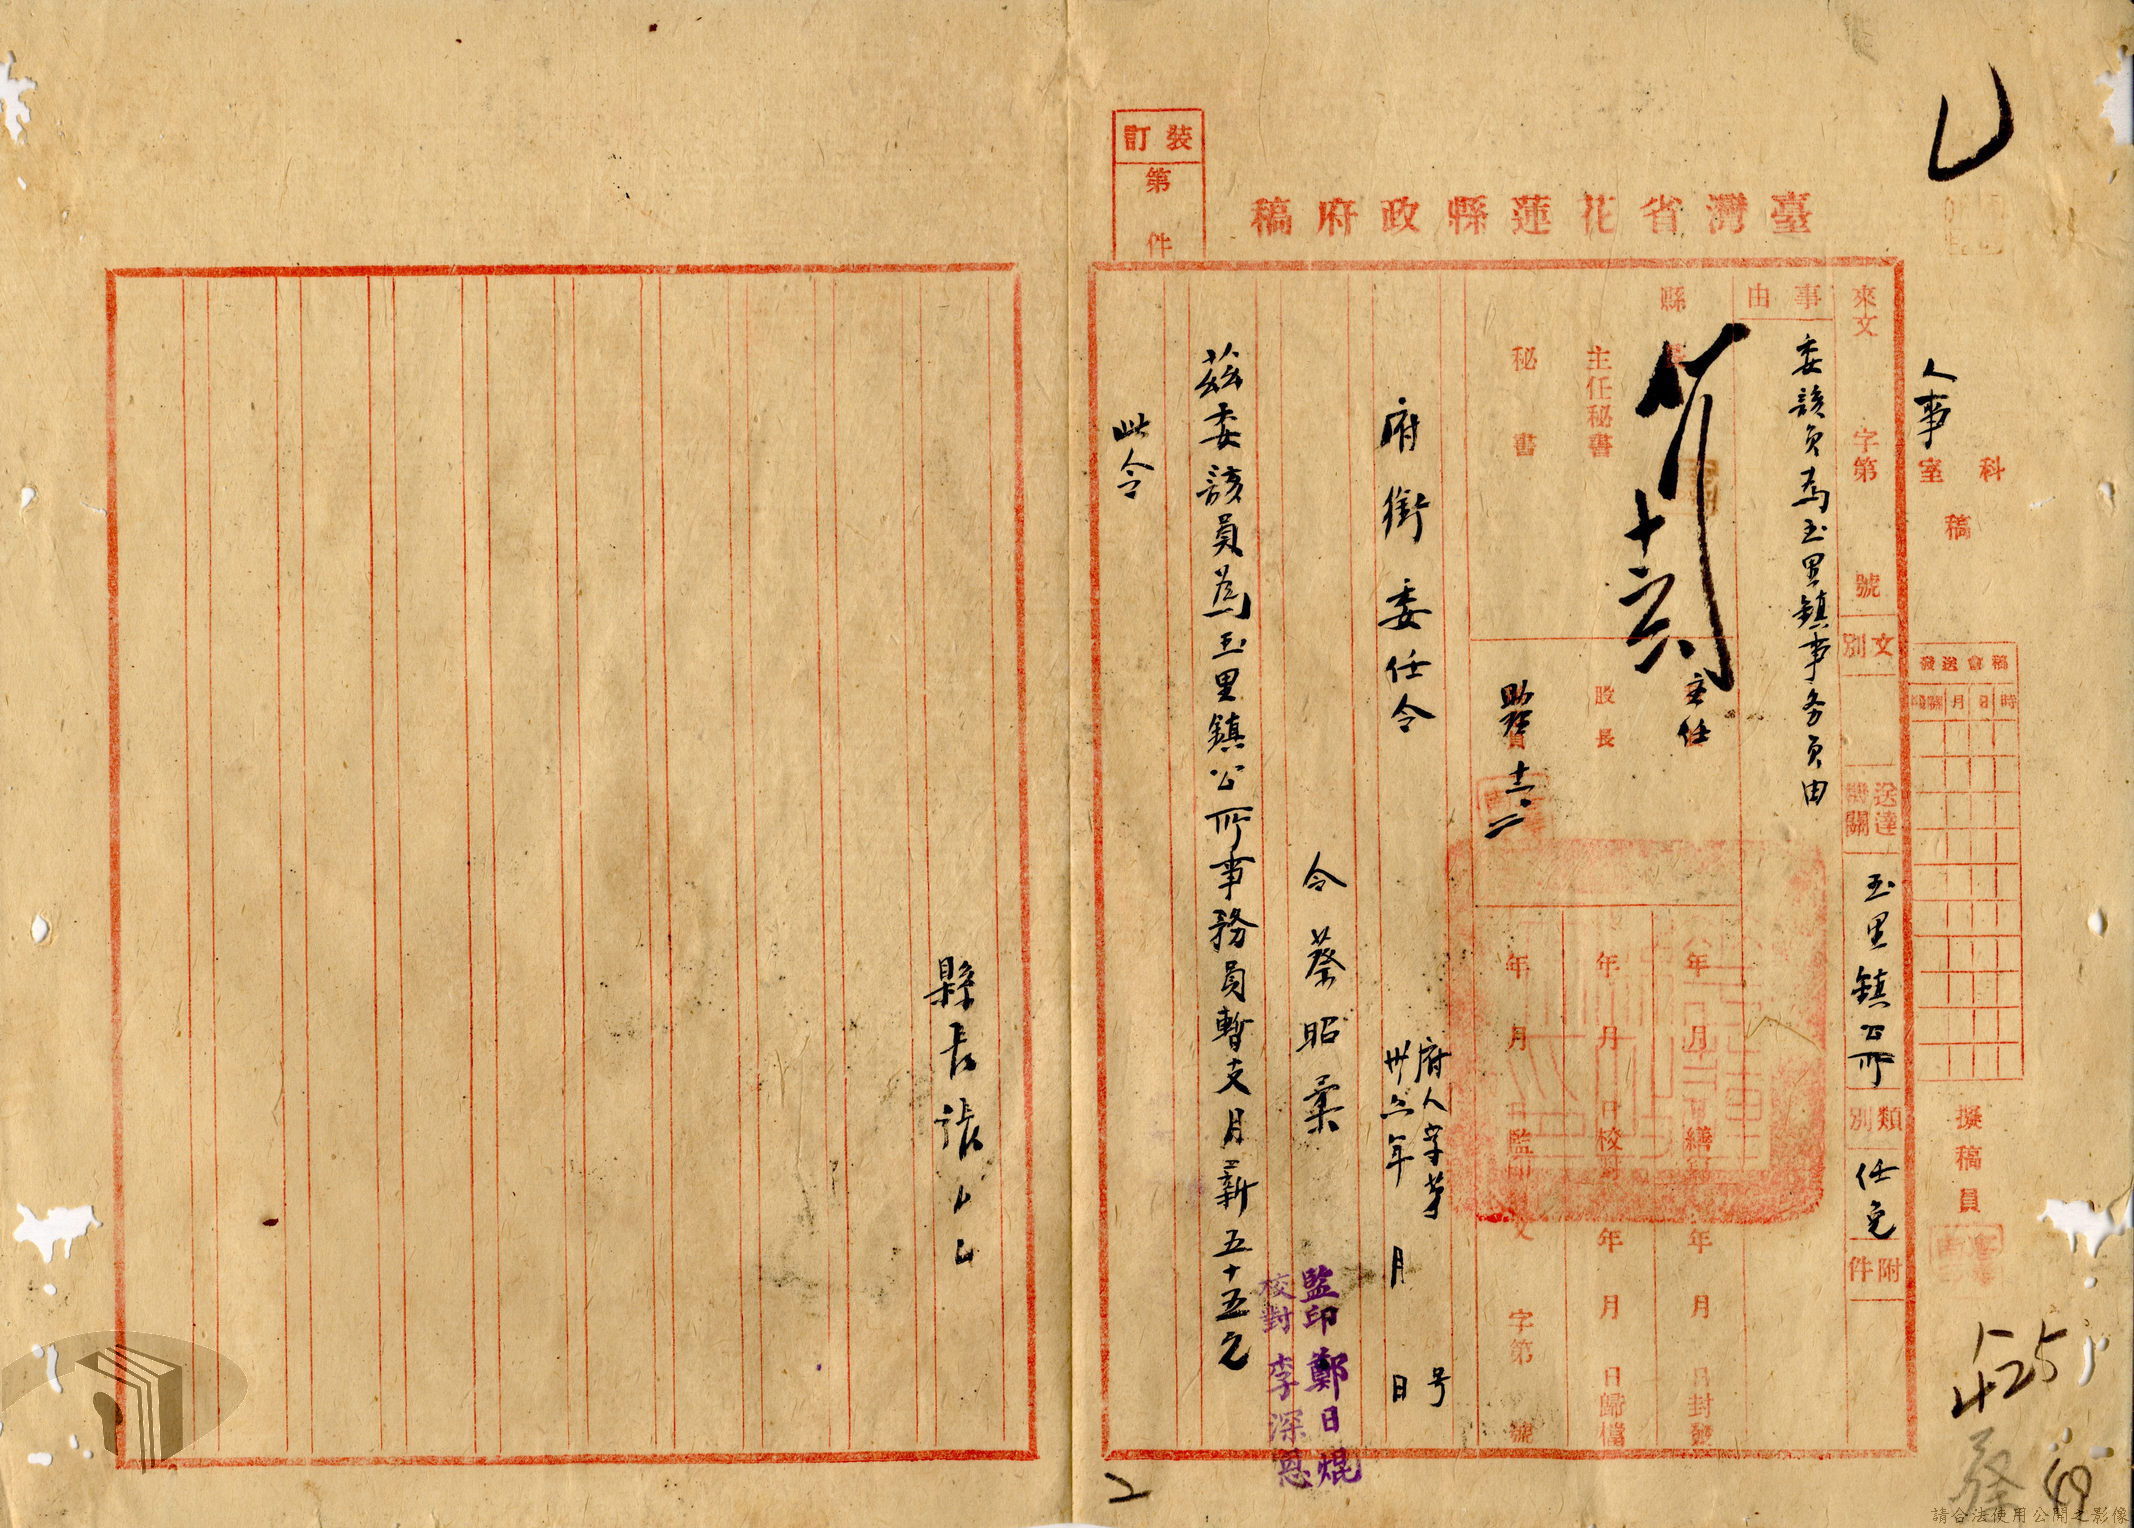 臺灣省花蓮縣政府稿
裝訂
第 件
科
人事室
稿
稿會送發
時 日 月
擬稿員
來文 字第 號
文別
送達機關 玉里鎮公所
類別 任免
附件
事由
委該員為玉里鎮事务員由
縣
主任秘書
秘書
十六
主任
股長
十二
年 月 日 繕
年 月 日 校對
年 月 日 監印
年 月 日 封發
年 月 日 歸檔
字第 號
府人字第 号
府銜委任令 卅六年 月 日
令蔡昭棠
茲委該員為玉里鎮公所事務員暫支月薪五十五元
此令
監印 鄭日焜
校對 李深恩
縣長 張
425
蔡
49
2
請合法使用公開之影像